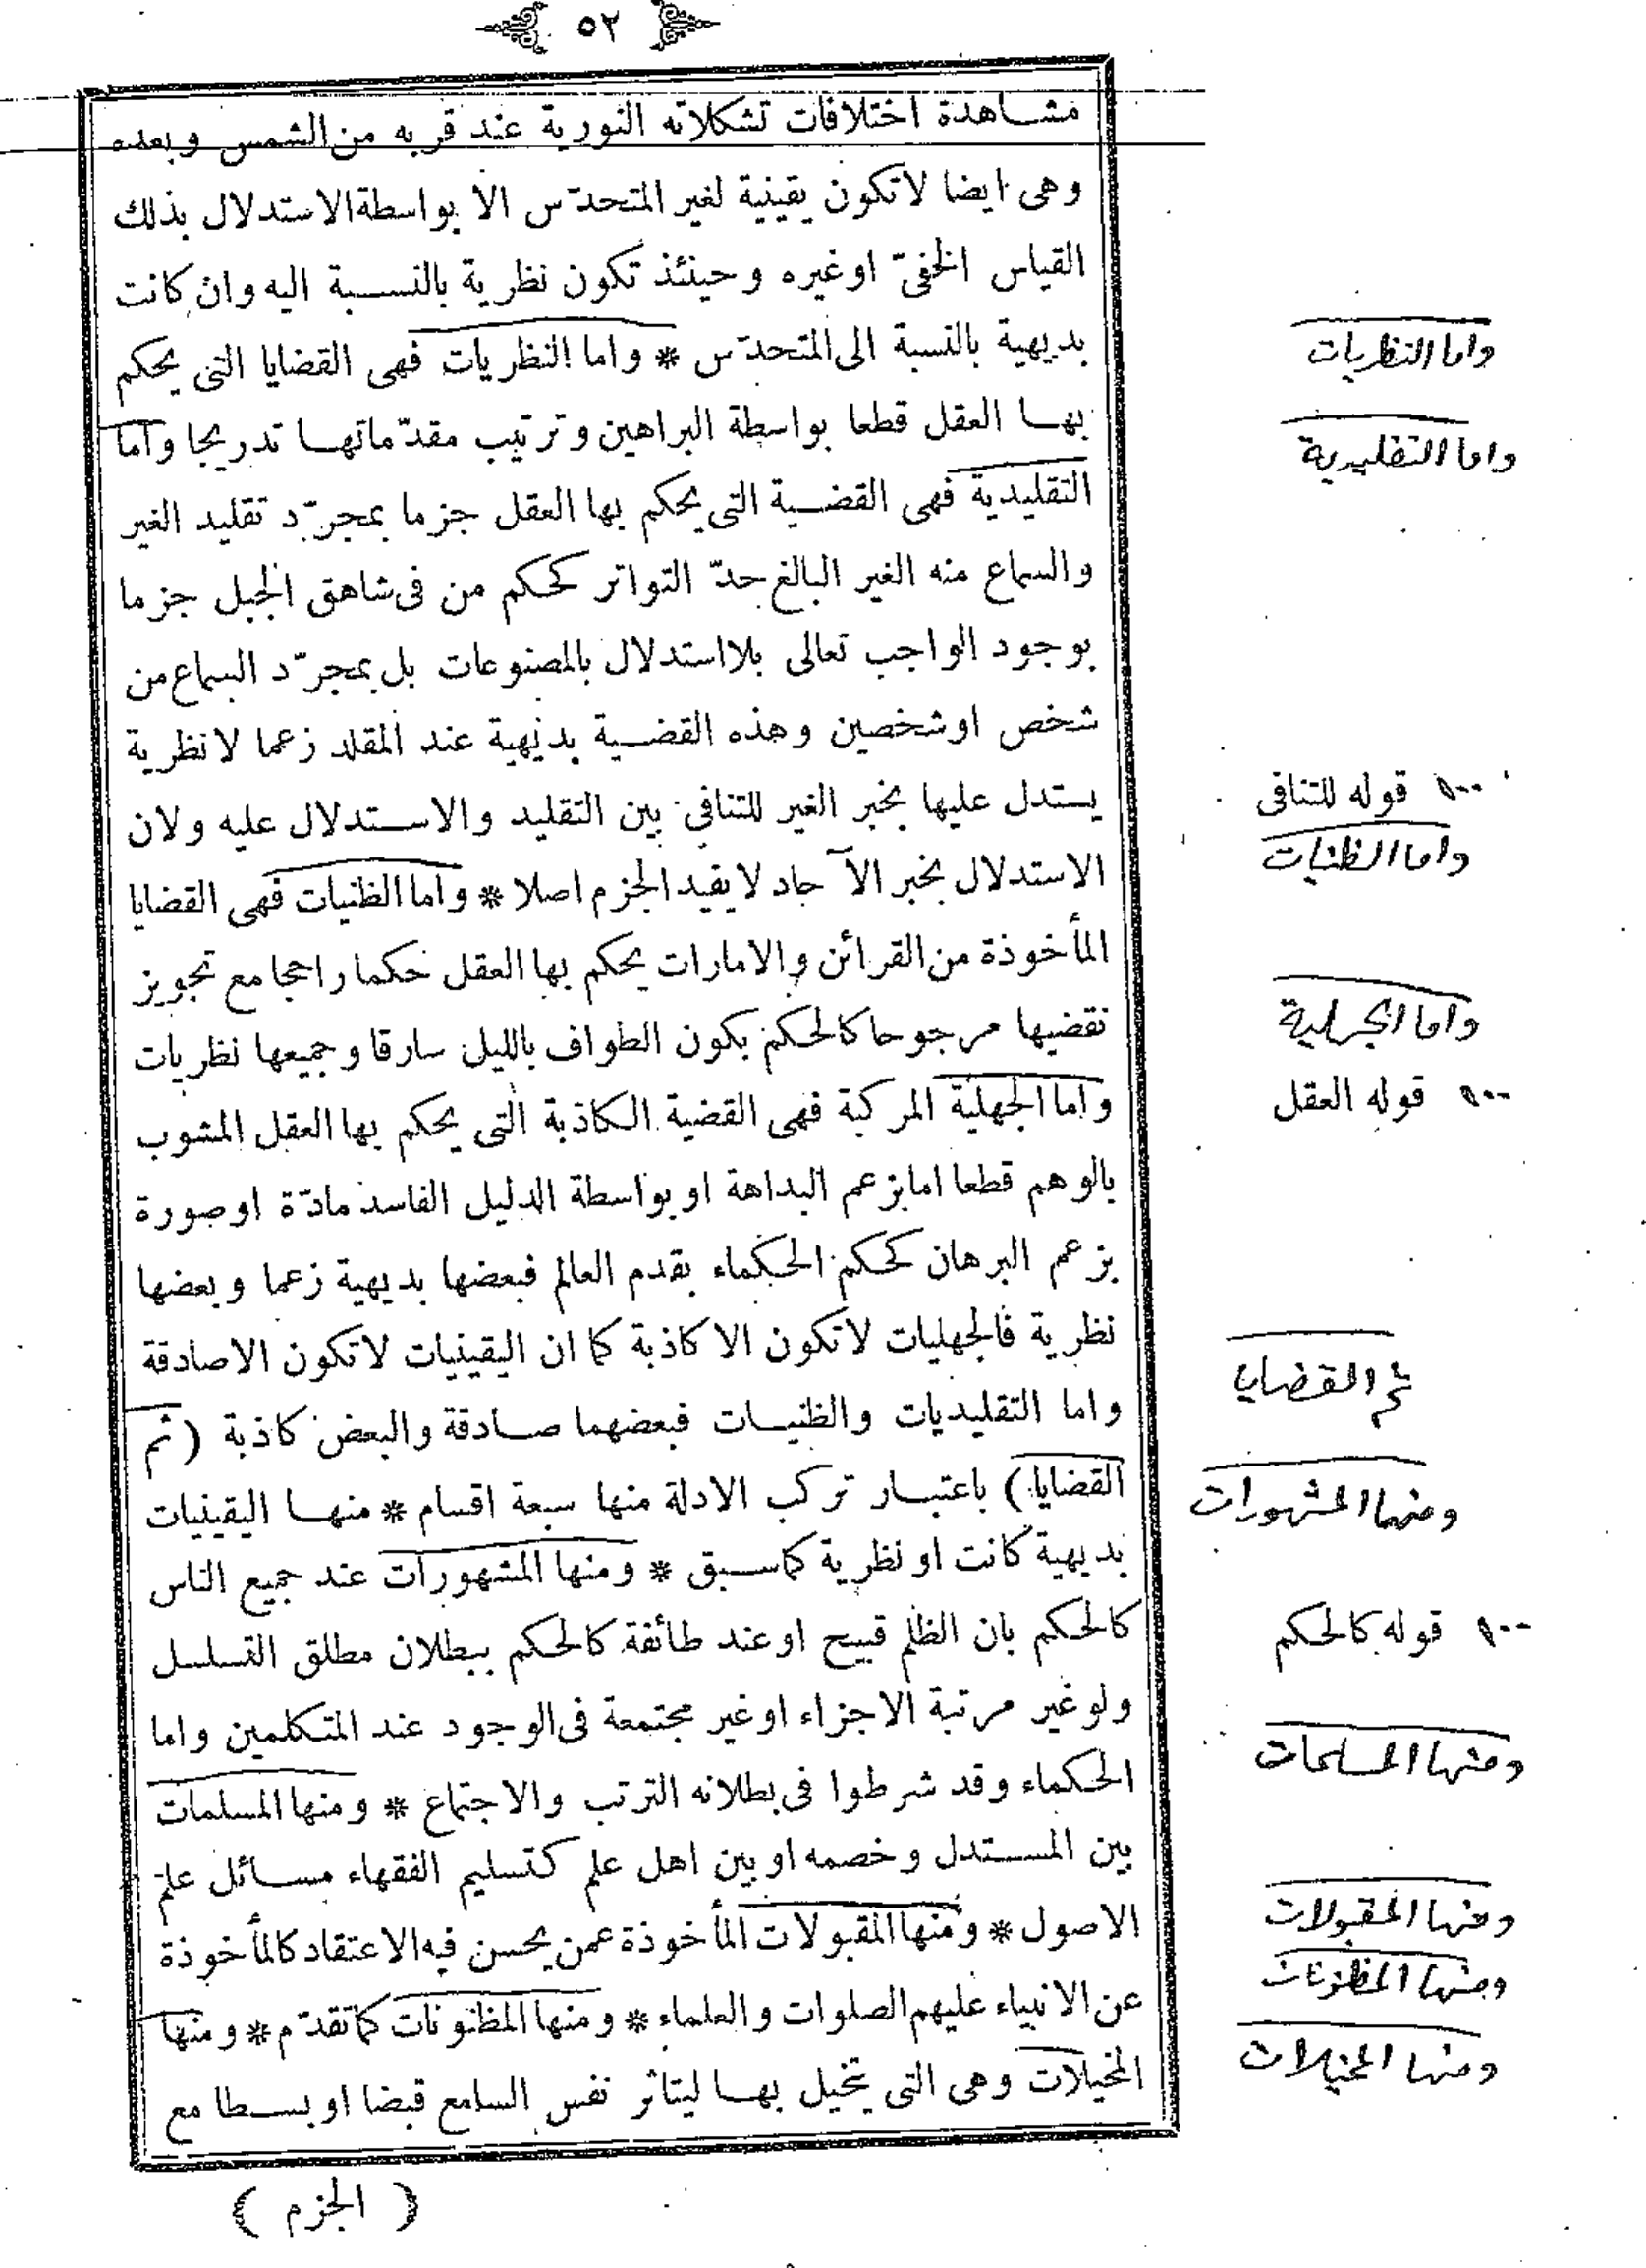 ٥٢
مشاهدة اختلافات تشكلاته النورية عند قربه من الشمس وبعده
وهى ايضا لاتكون يقينية لغير المتحدّس الا بواسطة الاستدلال بذلك
القياس الخفىّ اوغيره وحينئذ تكون نظرية بالنسبة اليه وان كانت
بديهية بالنسبة الى المتحدّس * واما النظريات فهى القضايا التى يحكم
بها العقل قطعا بواسطة البراهين وترتيب مقدّماتها تدريجا واما
التقليدية فهى القضية التى يحكم بها العقل جزما بمجرّد تقليد الغير
والسماع منه الغير البالغ حدّ التواتر كحكم من فى شاهق الجبل جزما
بوجود الواجب تعالى بلا استدلال بالمصنوعات بل بمجرّد السماع من
شخص اوشخصين وهذه القضية بديهية عند المقلد زعما لا نظرية
يستدل عليها بخبر الغير للتنافى بين التقليد والاستدلال عليه ولان
الاستدلال بخبر الآحاد لايفيد الجزم اصلا * واما الظنيات فهى القضايا
المأخوذة من القرائن والامارات يحكم بها العقل حكما راجحا مع تجويز
نقضيها مرجوحا كالحكم بكون الطواف بالليل سارقا وجميعها نظريات
واما الجهلية المركبة فهى القضية الكاذبة التى يحكم بها العقل المشوب
بالوهم قطعا اما بزعم البداهة او بواسطة الدليل الفاسد مادّة اوصورة
بزعم البرهان كحكم الحكماء بقدم العالم فبعضها بديهية زعما وبعضها
نظرية فالجهليات لاتكون الا كاذبة كما ان اليقينيات لاتكون الاصادقة
واما التقليديات والظنيات فبعضهما صادقة والبعض كاذبة (ثم
القضايا) باعتبار تركب الادلة منها سبعة اقسام * منها اليقينيات
بديهية كانت او نظرية كماسبق * ومنها المشهورات عند جميع الناس
كالحكم بان الظلم قبيح اوعند طائفة كالحكم ببطلان مطلق التسلسل
ولو غير مرتبة الاجزاء اوغير مجتمعة فى الوجود عند المتكلمين واما
الحكماء وقد شرطوا فى بطلانه الترتب والاجتماع * ومنها المسلمات
بين المستدل وخصمه اوبين اهل علم كتسليم الفقهاء مسائل علم
الاصول * ومنها المقبولات المأخوذة عمن يحسن فيه الاعتقاد كالمأخوذة
عن الانبياء عليهم الصلوات والعلماء * ومنها المظنونات كماتقدّم * ومنها
المخيلات وهى التى يتخيل بها ليتاثر نفس السامع قبضا اوبسطا مع
( الجزم )
واما النظريات
واما التقليدية
قوله للتنافى
واما الظنيات
واما الجهلية
قوله العقل
ثم القضايا
ومنها المشهورات
قوله كالحكم
ومنها المسلمات
ومنها المقبولات
ومنها المظنونات
ومنها المخيلات